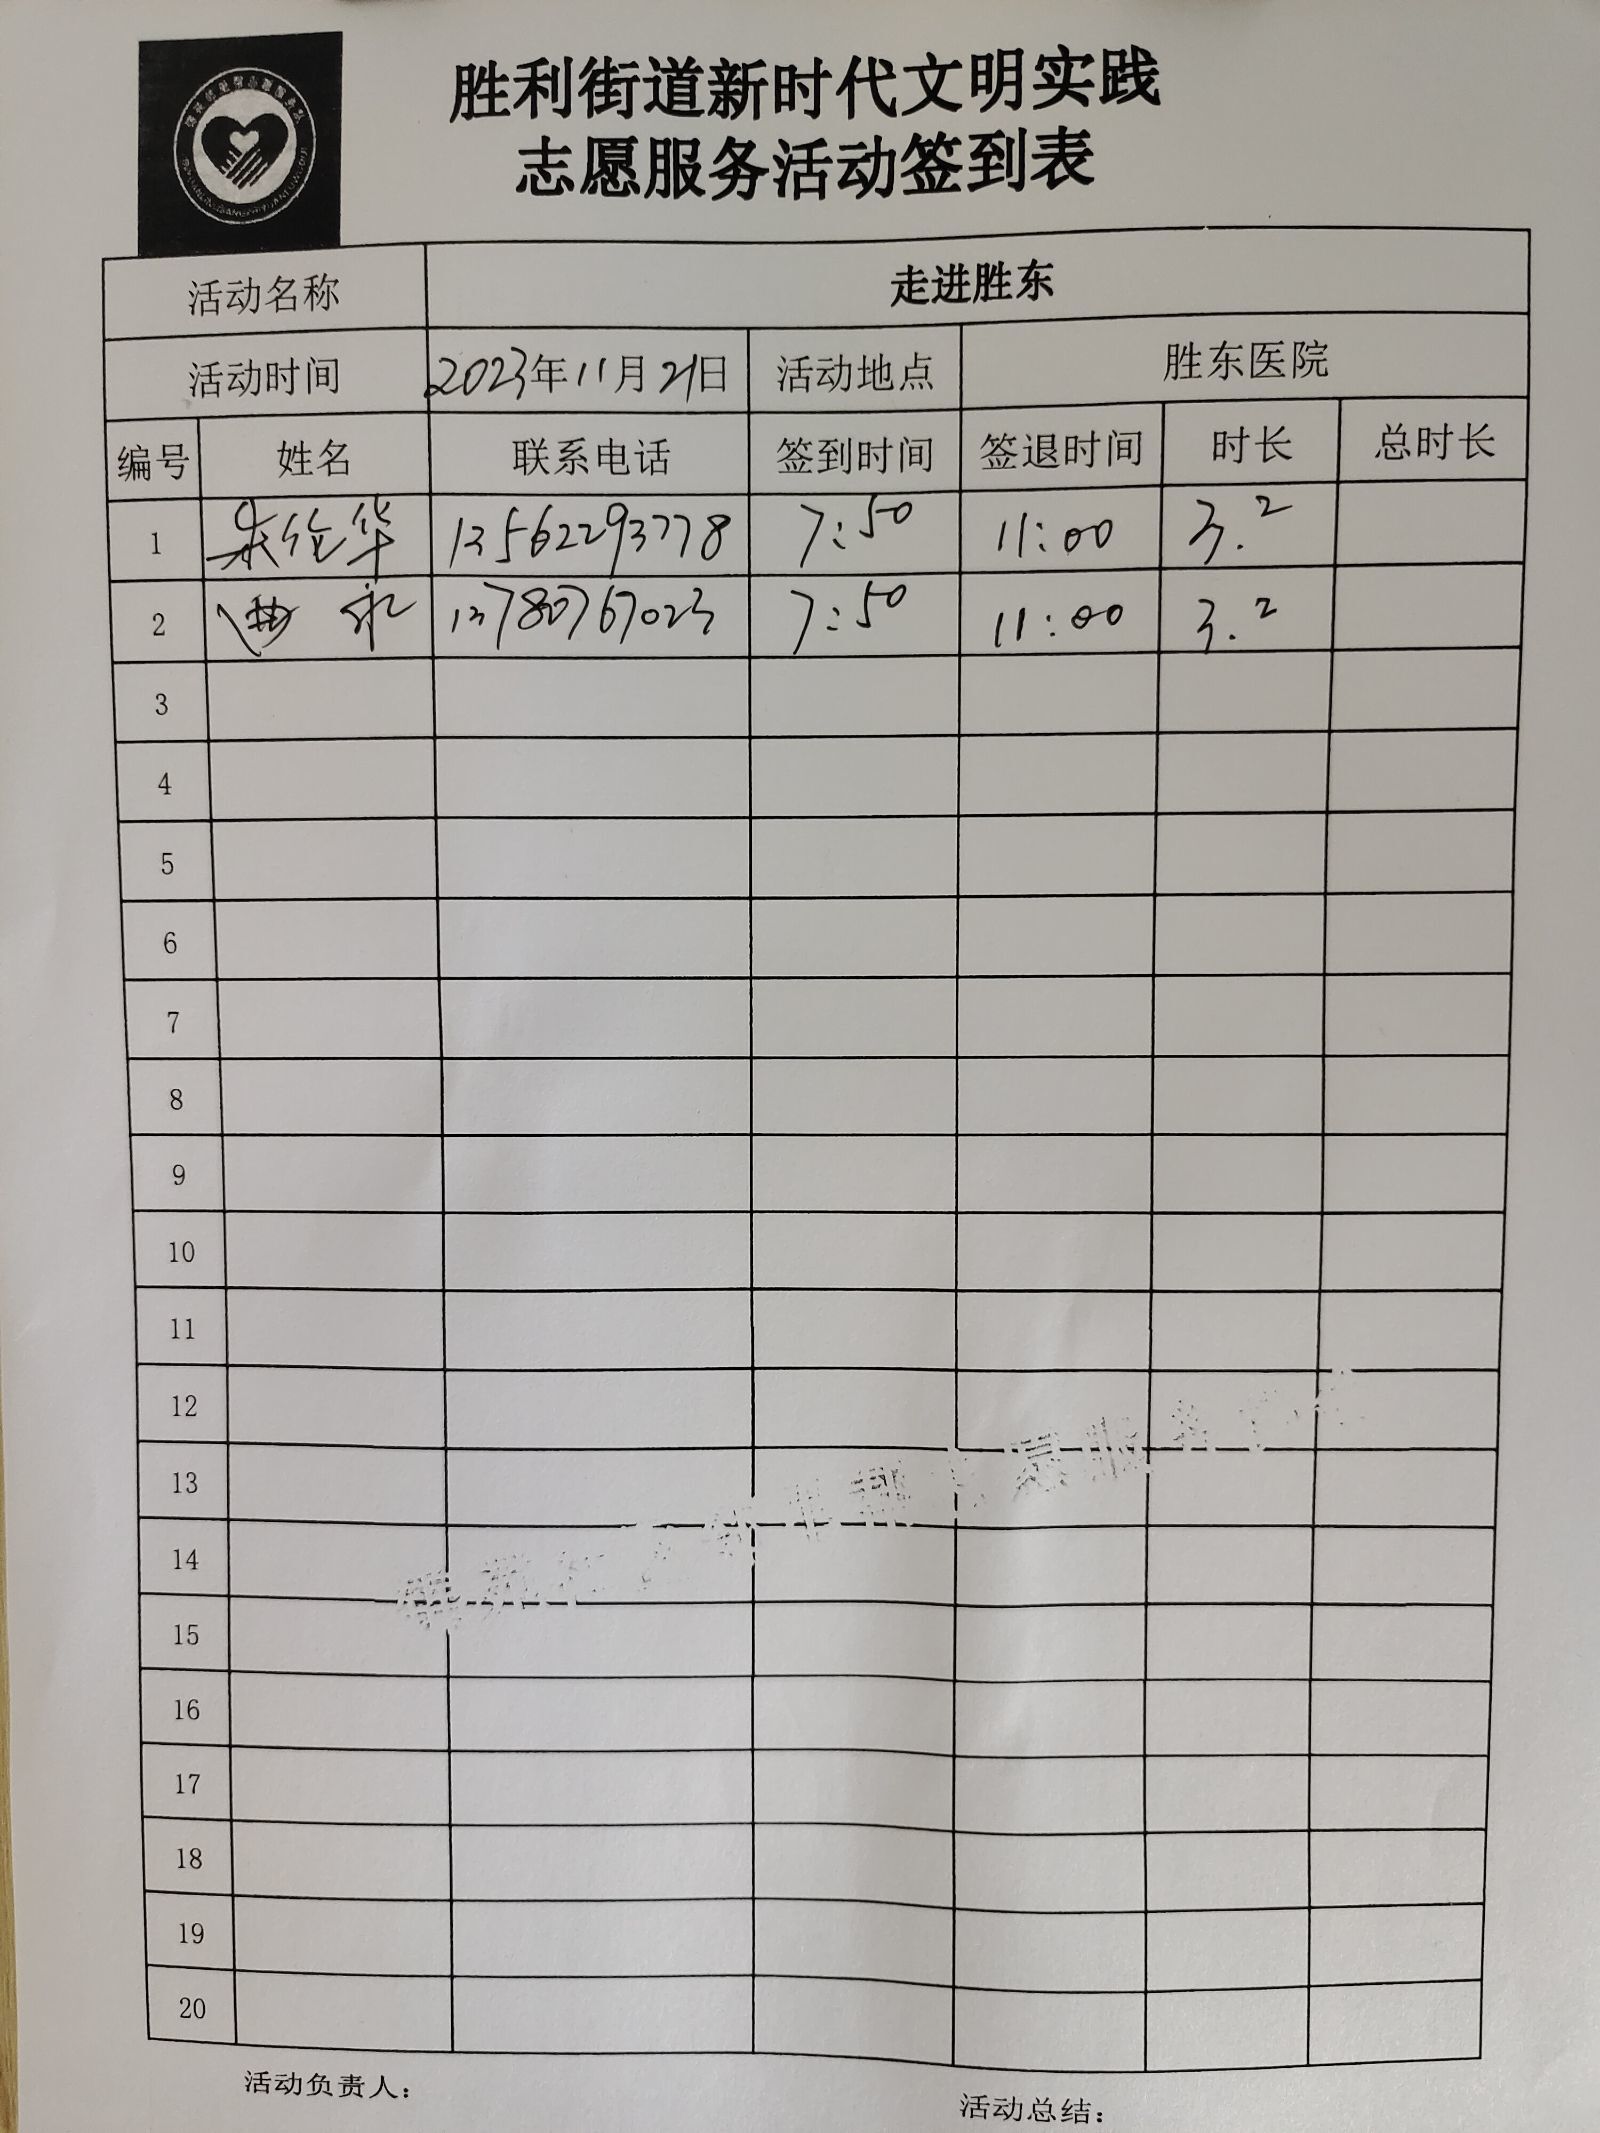 胜利街道新时代文明实践
志愿服务活动签到表
活动名称 走进胜东
活动时间 2023年11月21日 活动地点 胜东医院
编号 姓名 联系电话 签到时间 签退时间 时长 总时长
1 华 13562293778 7:50 11:00 3.2
2 永 13780767023 7:50 11:00 3.2
3
4
5
6
7
8
9
10
11
12
13
14
15
16
17
18
19
20
活动负责人：
活动总结：